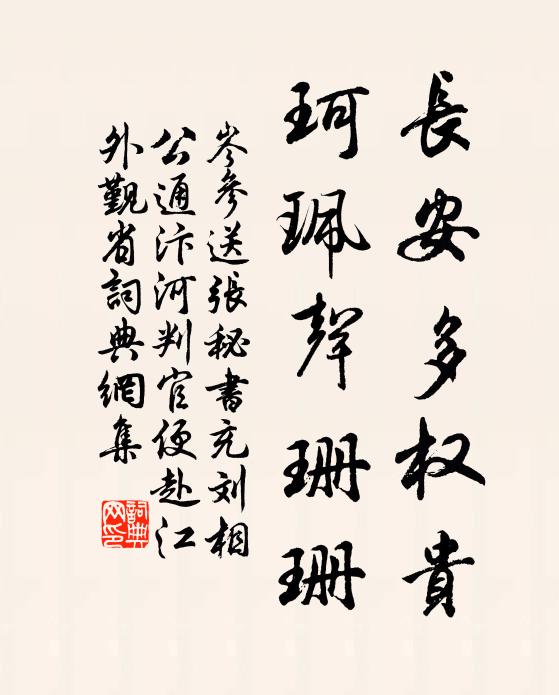 長安多权貴
珂珮聲珊珊
岑參送張秘書充刘相
公通汴河判官便赴江
外觐省詞典網集
詞典网印